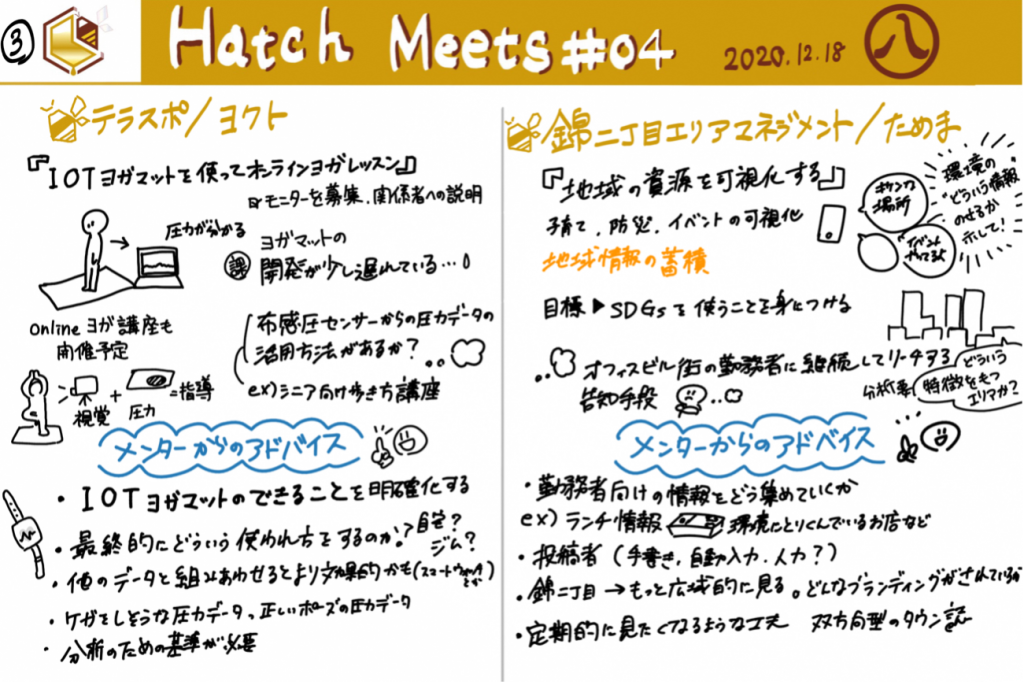 ③
Hatch Meets #04
2020.12.18
八
テラスポ/ヨクト
『IOTヨガマットを使ってオンラインヨガレッスン』
モニターを募集、関係者への説明
圧力が分かる
課
ヨガマットの
開発が少し遅れている…
onlineヨガ講座も
開催予定
布感圧センサーからの圧力データの
活用方法があるか?
ex)シニア向け歩き方講座
視覚
+
圧力
=指導
メンターからのアドバイス
・IOTヨガマットのできることを明確化する
・最終的にどういう使われ方をするのか?
自宅?
ジム?
・他のデータと組みあわせるとより効果的かも(スマートウォッチとか)
・ケガをしそうな圧力データ、正しいポーズの圧力データ
・分析のための基準が必要
錦二丁目エリアマネジメント/ためま
『地域の資源を可視化する』
子育て、防災、イベントの可視化
地域情報の蓄積
キケンな
場所
イベント
やってるよ
環境の
どういう情報
のせるか
示して!
目標▶SDGsを使うことを身につける
オフィスビル街の勤務者に継続してリーチする
告知手段
分析要
どういう
特徴をもつ
エリアか?
メンターからのアドバイス
・勤務者向けの情報をどう集めていくか
ex)ランチ情報
環境にとりくんでいるお店など
・投稿者(手書き、自動入力、人力?)
・錦二丁目→もっと広域的に見る。どんなブランディングがされているか
・定期的に見たくなるような工夫
双方向型のタウン誌